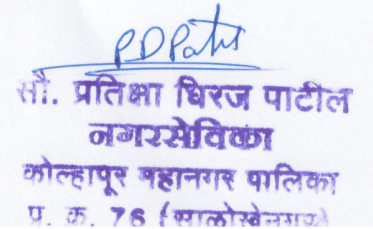 PDPatil
सौ. प्रतिक्षा धिरज पाटील
नगरसेविका
कोल्हापूर महानगर पालिका
प्र. क्र. 76 (साळोखेनगर)